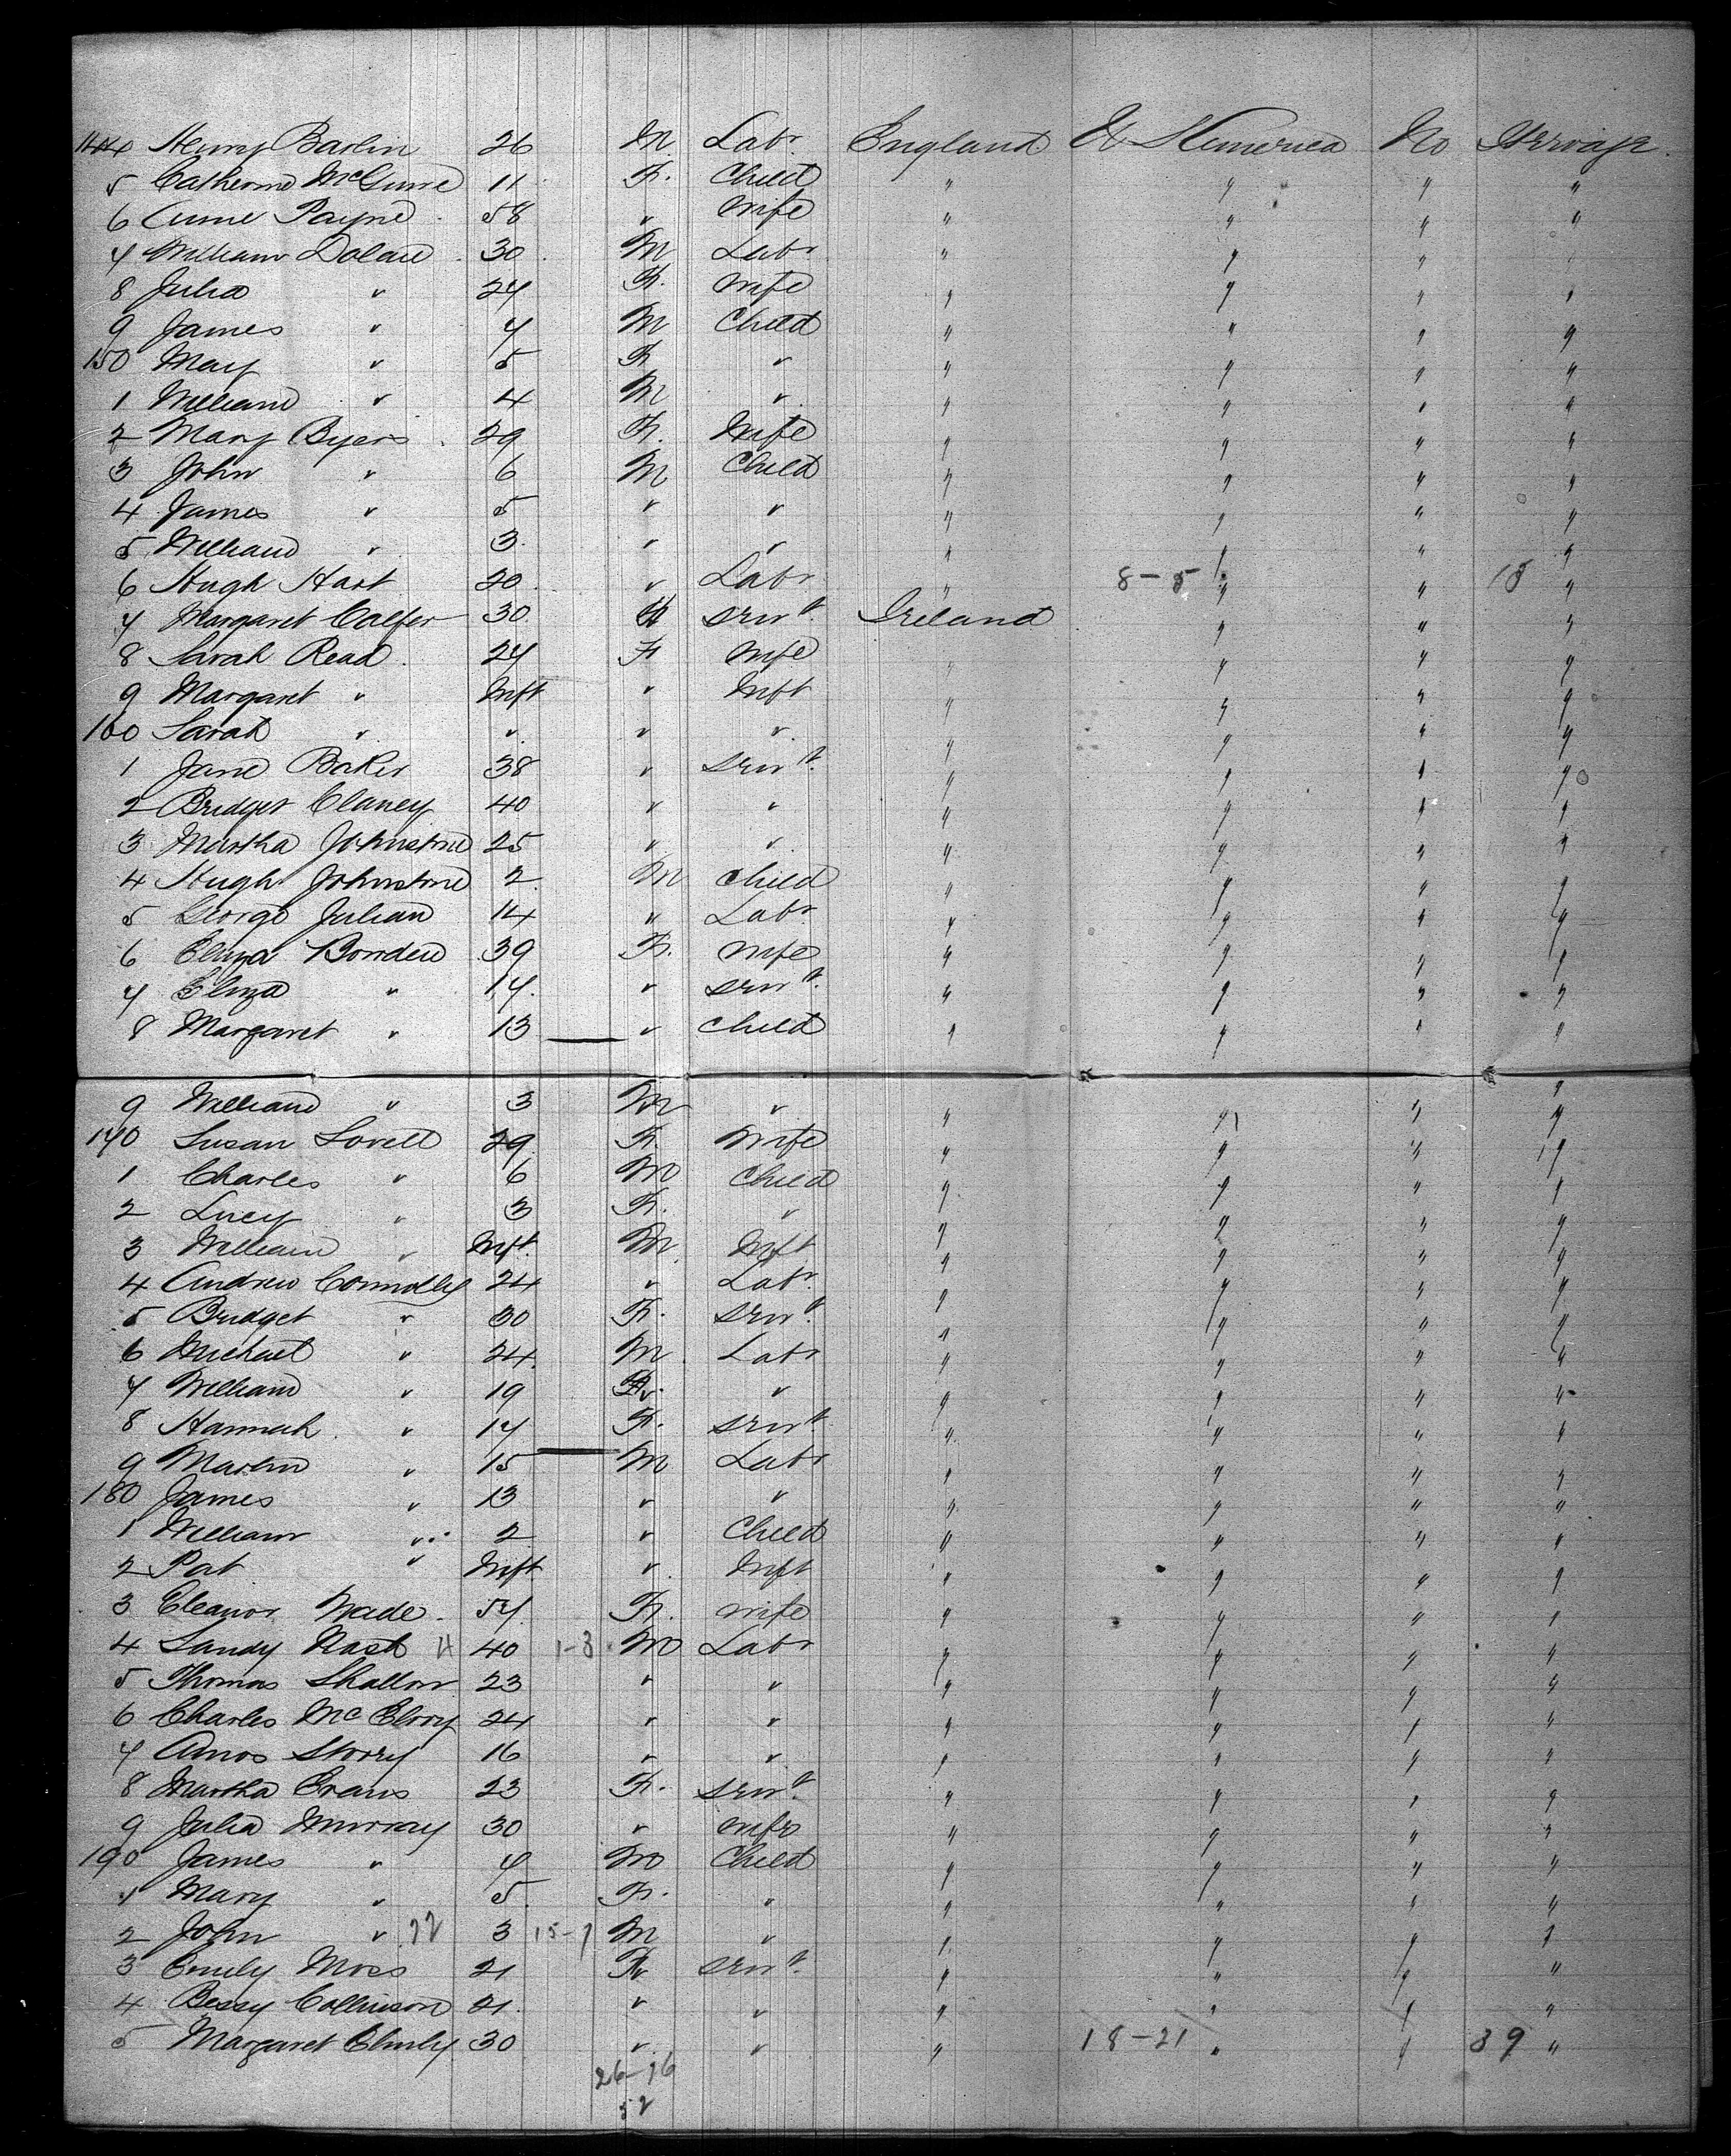 144 Henry Barlin 26 M Labr England N America No Steerage
5 Catherine McGuire 11 F. Child " " " "
6 Anne Payne 58 " Wife " " " "
7 William Dolan 30 M Labr " " " "
8 Julia " 27 F. Wife " " " "
9 James " 7 M Child " " " "
150 Mary " 5 F " " " " "
1 William " 4 M " " " " "
2 Mary Byers 29 F. Wife " " " "
3 John " 6 M Child " " " "
4 James " 5 " " " " " "
5 William " 3 " " " " " "
6 Hugh Hart 20 " Labr " 8-5 " " 13 "
7 Margaret 30 F servt. Ireland " " "
8 Sarah Read 27 F Wife " " " "
9 Margaret " Inft " Inft " " " "
160 Sarah " " " " " " " "
1 Jane Baker 38 " servt. " " " "
2 Bridget Clancy 40 " " " " " "
3 Martha Johnstone 25 " " " " " "
4 Hugh Johnstone 2 M Child " " " "
5 George Julian 14 " Labr " " " "
6 Eliza Bowden 39 F. Wife " " " "
7 Eliza " 17 " servt. " " " "
8 Margaret " 13 " Child " " " "
9 William " 3 M " " " " "
170 Susan Lovell 29 F. Wife " " " "
1 Charles " 6 M Child " " " "
2 Lucy " 3 F. " " " " "
3 William " Inft. M Inft " " " "
4 Andrew Connolly 24 " Labr. " " " "
5 Bridget " 30 F. servt. " " " "
6 Michael " 24 M. Labr " " " "
7 William " 19 " " " " " "
8 Hannah " 17 F. servt. " " " "
9 Martin " 15 M Labr " " " "
180 James " 13 " " " " " "
1 William " 2 " Child " " " "
2 Pat " Inft " Inft " " " "
3 Eleanor Wade 57 F. Wife " " " "
4 Sandy Nash 11 40 1-3 M Labr " " " "
5 Thomas Shallow 23 " " " " " "
6 Charles McElroy 24 " " " " " "
7 Amos Storry 16 " " " " " "
8 Martha Evans 23 F. servt. " " " "
9 Julia Murray 30 " Wife " " " "
190 James " 7 M Child " " " "
1 Mary " 5 F. " " " " "
2 John " 22 3 15-7 M " " " " "
3 Emily Moss 21 F servt. " " " "
4 Bessy Collinson 21 " " " " " "
5 Margaret 30 " " " 18-21 " " 39 "
26-26
52